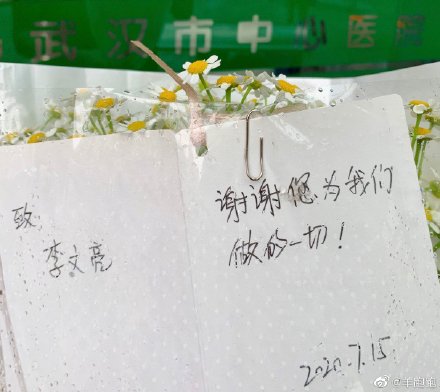 武汉市中心医院
致
李文亮
谢谢您为我们
做的一切！
2020.7.15